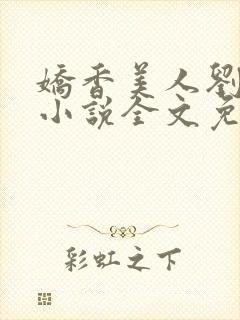 嬌香美人劉
小說全文免
彩虹之下